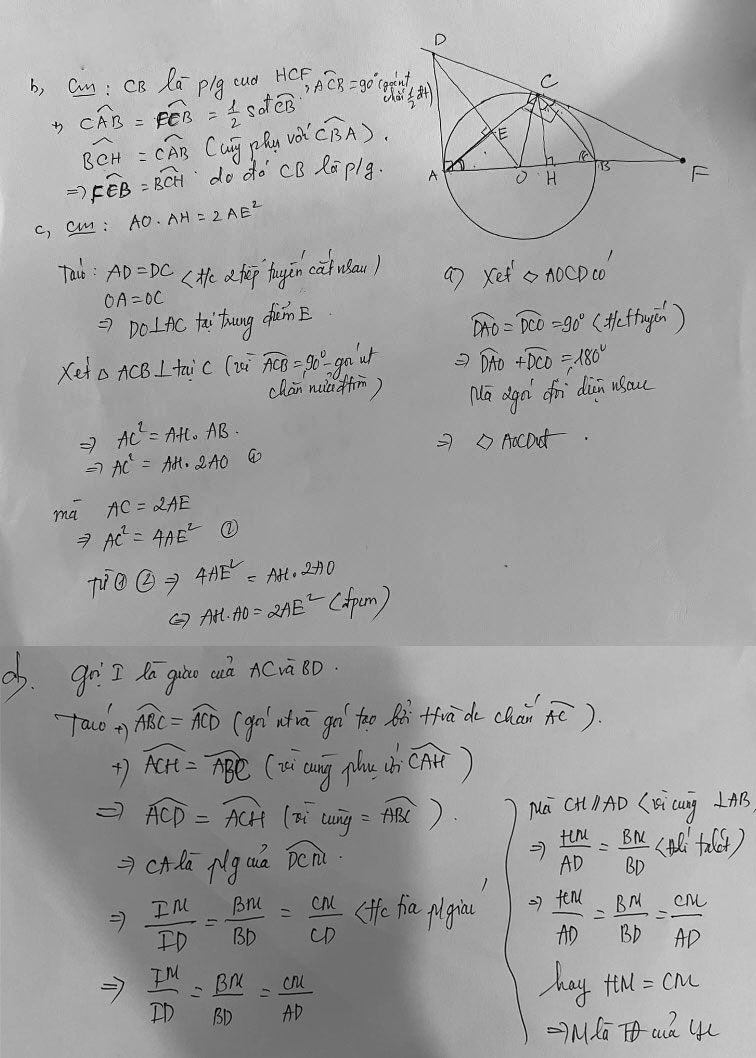 b, Cm : CB là p/g của HCF, ACB = 90° (góc nt chắn 1/2 đt)
+) CAB = FCB = 1/2 sđ CB
BCH = CAB (cùng phụ với CBA).
=> FCB = BCH do đó CB là p/g.
c, Cm : AO . AH = 2AE²
Ta có : AD = DC (t/c 2 tiếp tuyến cắt nhau)
OA = OC
=> DO ⊥ AC tại trung điểm E.
Xét Δ ACB ⊥ tại C (vì ACB = 90° - góc nt
chắn nửa đtròn)
=> AC² = AH . AB.
=> AC² = AH . 2AO ①
mà AC = 2AE
=> AC² = 4AE² ②
Từ ① ② => 4AE² = AH . 2AO
<=> AH . AO = 2AE² (đpcm)
D
C
E
A
O
H
B
F
a) Xét ◇ AOCD có
DAO = DCO = 90° (t/c t tuyến)
=> DAO + DCO = 180°
Mà 2 góc đối diện nhau
=> ◇ AOCD nt.
d). gọi I là giao của AC và BD.
Ta có +) ABC = ACD (góc nt và góc tạo bởi tt và dc chắn AC).
+) ACH = ABC (vì cùng phụ với CAH)
=> ACD = ACH (vì cùng = ABC).
=> CA là p/g của DCM.
=> IM/ID = BM/BD = CM/CD (t/c tia p/giác
=> IM/ID = BM/BD = CM/AD
Mà CH // AD (vì cùng ⊥ AB)
=> HM/AD = BM/BD (đlí talét)
=> HM/AD = BM/BD = CM/AD
hay HM = CM
=> M là TĐ của